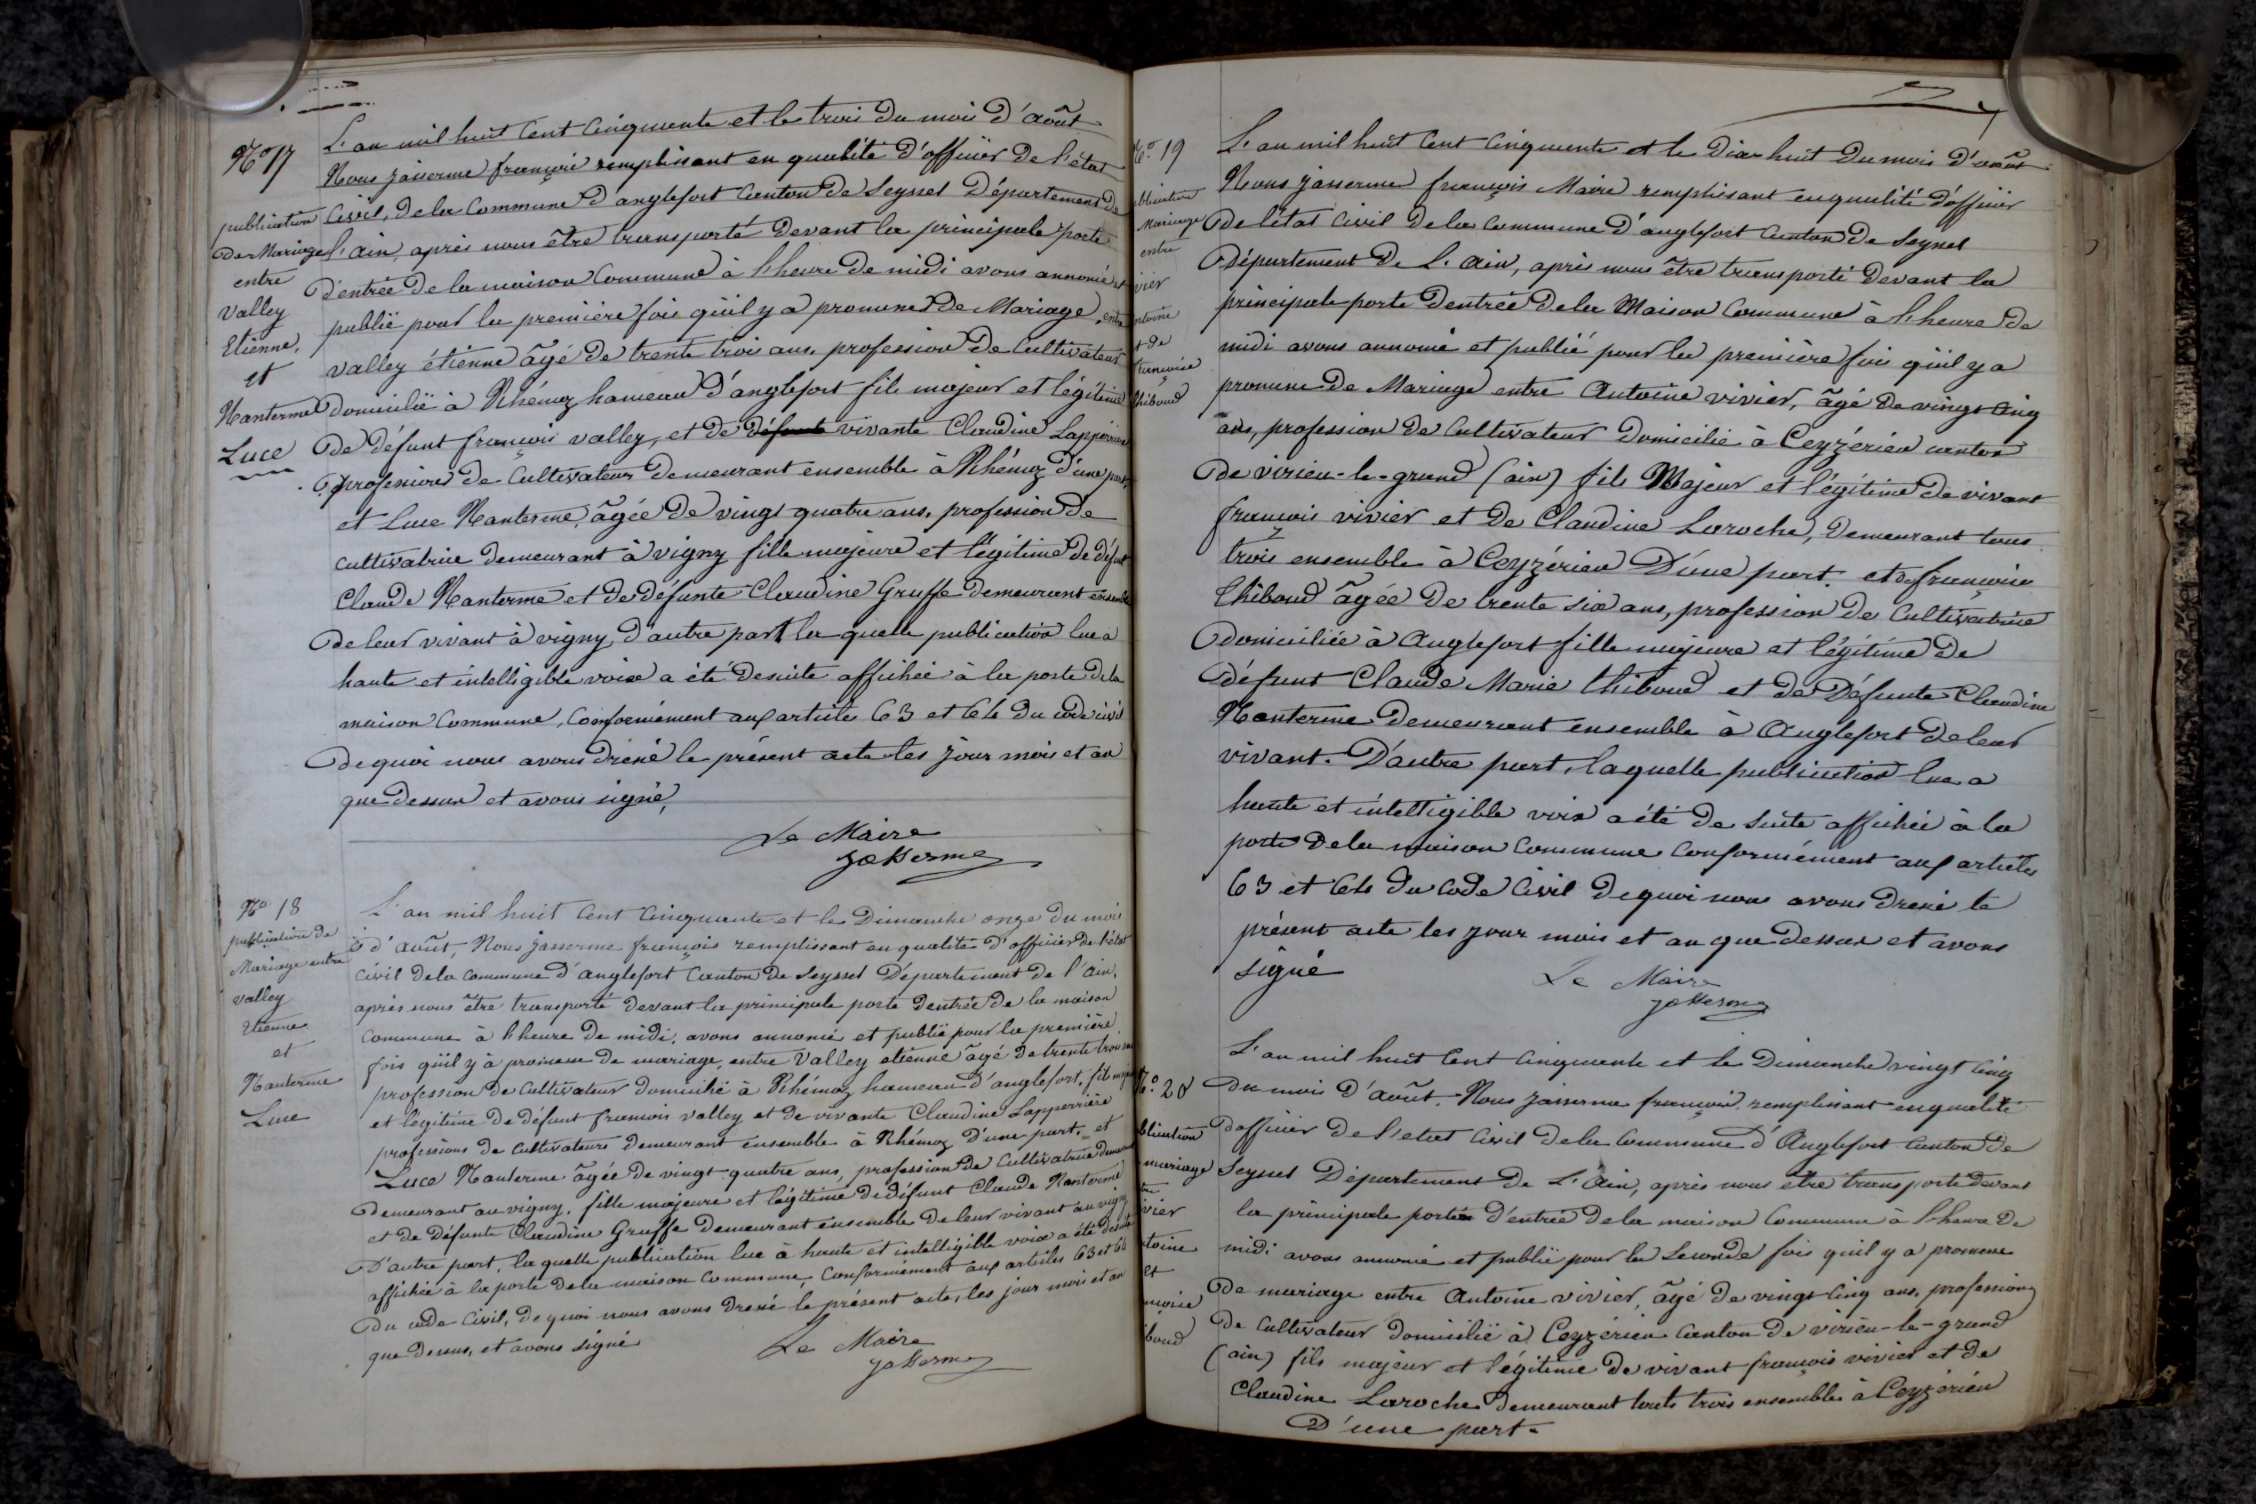 Nº 17
publication
De Mariage
entre
Valley
Etienne,
et
Nanterme
Luce
L'an mil huit Cent Cinquante et le trois du mois d'août
Nous jasserme françois remplissant en qualité d'officier de l'état
Civil, de la Commune d'anglefort Canton de Seyssel Département de
l'ain, après nous être transporté devant la principale porte
d'entrée de la maison Commune à l'heure de midi avons annoncé et
publié pour la première fois qu'il y a promesse de Mariage, entre
valley étienne âgé de trente trois ans, profession de Cultivateur
domicilié à Rhémoz hameau d'anglefort fils majeur et légitime
de défunt françois valley, et de défunte vivante Claudine Lapperrière
professions de Cultivateurs demeurant ensemble à Rhémoz d'une part,
et Luce Nanterme, âgée de vingt quatre ans, profession de
cultivatrice demeurant à vigny fille majeure et légitime de défunt
Claude Nanterme et de défunte Claudine Gruffe demeurant ensemble
de leur vivant à vigny, d'autre part la quelle publication lue à
haute et intelligible voix a été desuite affichée à la porte de la
maison Commune, Conformément aux articles 63 et 64 du code civil
de quoi nous avons dressé le présent acte les jour mois et an
que dessus et avons signé,
Le Maire
Jasserme
Nº 18
publication de
Mariage entre
valley
Etienne
et
Nanterme
Luce
L'an mil huit Cent Cinquante et le Dimanche onze du mois
d'août, Nous jasserme françois remplissant en qualité d'officier de l'état
civil de la Commune d'anglefort Canton de Seyssel Département de l'ain,
après nous être transporté devant la principale porte d'entrée de la maison
Commune à l'heure de midi, avons annoncé et publié pour la première
fois qu'il y à promesse de mariage, entre Valley etienne âgé de trente trois ans
profession de Cultivateur domicilié à Rhémoz hameau d'anglefort, fils majeur
et légitime de défunt francois valley et de vivante Claudine Lapperrière
professions de Cultivateurs demeurant ensemble à Rhémoz d'une part, et
Luce Nanterme âgée de vingt-quatre ans, profession de Cultivatrice
demeurant au vigny, fille majeure et légitime de défunt Claude Nanterme
et de défunte Claudine Gruffe demeurant ensemble de leur vivant au vigny
D'autre part, la quelle publication lue à haute et intelligible voix a été desuite
affichée à la porte de la maison Commune, Conformément aux articles 63 et 64
du code Civil, de quoi nous avons dressé le présent acte, les jour mois et an
que dessus, et avons signé
Le Maire
Jasserme
Nº 19
blication
Mariage
entre
vier
ntoine
t de
françoise
thiboud
L'an mil huit Cent Cinquante et le Dix huit du mois d'août
Nous jasserme françois Maire remplissant en qualité d'officier
de l'état Civil de la Commune d'anglefort Canton de Seyssel
Département de L'ain, après nous être transporté devant la
principale porte d'entrée de la Maison Commune à l'heure de
midi avons annoncé et publié pour la première fois qu'il y a
promesse de Mariage entre Antoine vivier, âgé de vingt Cinq
ans, profession de Cultivateur Domicilié à Ceyzérieu canton
de virieu-le-grand (ain) fils Majeur et légitime de vivant
françois vivier et de Claudine Laroche, demeurant tous
trois ensemble à Ceyzérieu D'une part. et de françoise
thiboud âgée de trente six ans, profession de Cultivatrice
domiciliée à Anglefort fille majeure et légitime de
défunt Claude Marie thiboud et de Défunte Claudine
Nanterme demeurant ensemble à Anglefort de leur
vivant. D'autre part, laquelle publication lue a
haute et intelligible voix a été de suite affichée à la
porte de la maison Commune Conformément aux articles
63 et 64 du code Civil de quoi nous avons dressé le
présent acte les jour mois et an que dessus et avons
signé
Le Maire
Jasserme
Nº 20
blication
mariage
tre
vivier
toine
et
nçoise
iboud
L'an mil huit Cent Cinquante et le Dimanche vingt Cinq
du mois d'août. Nous jasserme françois, remplissant en qualité
d'officier de l'etat Civil de la Commune d'Anglefort Canton de
Seyssel Département de L'Ain, après nous être transporté devant
la principale porte d'entrée de la maison Commune à l'heure de
midi avons annoncé et publié pour la Seconde fois qu'il y a promesse
de mariage entre Antoine vivier, âgé de vingt Cinq ans, profession
de Cultivateur domicilié à Ceyzérieu Canton de virieu-le-grand
(ain) fils majeur et légitime de vivant françois vivier et de
Claudine Laroche demeurant touts trois ensemble à Ceyzérieu
D'une part.